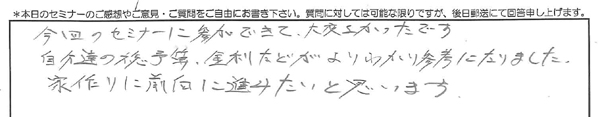 *本日のセミナーのご感想やご意見・ご質問をご自由にお書き下さい。質問に対しては可能な限りですが、後日郵送にて回答申し上げます。
今回のセミナーに参加できて、大変よかったです
自分達の総予算、金利などがよりわかり参考になりました。
家作りに前向に進みたいと思います